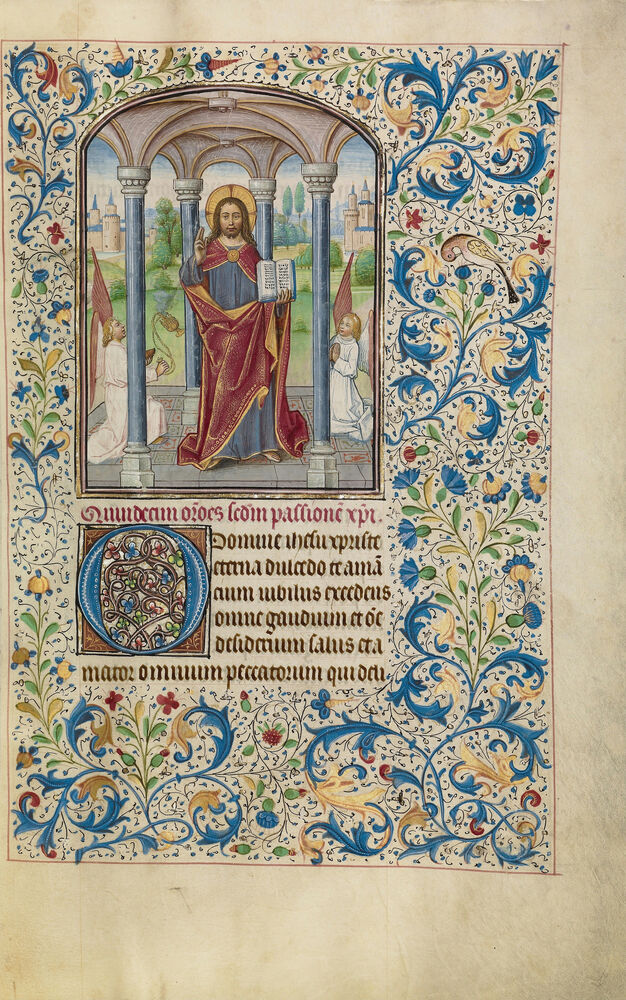 Quindecim orōes scdm passionē xpi.
O Domine ihesu xpriste
eterna dulcedo te amā
cium iubilus excedens
omne gaudium et ōe
desiderium salus et a
mator omnium peccatorum qui deli